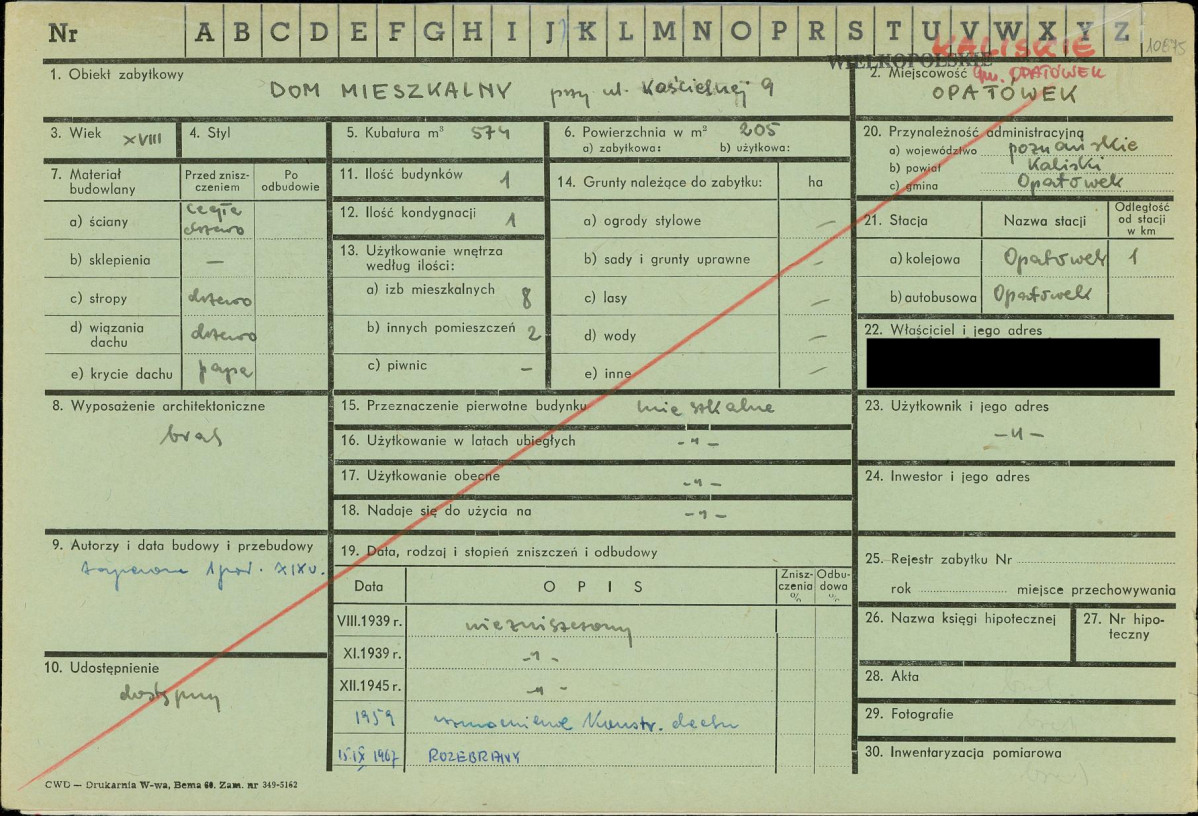 Nr A B C D E F G H I J K L M N O P R S T U V W X Y Z 10875
KALISKIE
WIELKOPOLSKIE
1. Obiekt zabytkowy
DOM MIESZKALNY przy ul. Kościelnej 9
2. Miejscowość gm. OPATÓWEK
OPATÓWEK
3. Wiek XVIII
4. Styl
5. Kubatura m³ 574
6. Powierzchnia w m² 205
a) zabytkowa: b) użytkowa:
20. Przynależność administracyjna
a) województwo poznańskie
b) powiat Kaliski
c) gmina Opatówek
7. Materiał budowlany
Przed znisz-
czeniem
Po
odbudowie
a) ściany cegła
drzewo
b) sklepienia —
c) stropy drzewo
d) wiązania
dachu drzewo
e) krycie dachu papa
11. Ilość budynków 1
12. Ilość kondygnacji 1
13. Użytkowanie wnętrza
według ilości:
a) izb mieszkalnych 8
b) innych pomieszczeń 2
c) piwnic –
14. Grunty należące do zabytku: ha
a) ogrody stylowe —
b) sady i grunty uprawne —
c) lasy —
d) wody —
e) inne —
21. Stacja Nazwa stacji Odległość
od stacji
w km
a) kolejowa Opatówek 1
b) autobusowa Opatówek
22. Właściciel i jego adres
8. Wyposażenie architektoniczne
brak
15. Przeznaczenie pierwotne budynku mieszkalne
16. Użytkowanie w latach ubiegłych -"-
17. Użytkowanie obecne -"-
18. Nadaje się do użycia na -"-
23. Użytkownik i jego adres
-"-
24. Inwestor i jego adres
9. Autorzy i data budowy i przebudowy
1 poł. XIX w.
19. Data, rodzaj i stopień zniszczeń i odbudowy
Data OPIS Znisz-
czenia
%
Odbu-
dowa
%
VIII.1939 r. niezniszczony
XI.1939 r. -"-
XII.1945 r. -"-
1959 wzmocnienie Konstr. dachu
15.IX 1967 ROZEBRANY
10. Udostępnienie
dostępny
25. Rejestr zabytku Nr
rok miejsce przechowywania
26. Nazwa księgi hipotecznej
27. Nr hipo-
teczny
28. Akta
29. Fotografie
30. Inwentaryzacja pomiarowa
CWD — Drukarnia W-wa, Bema 60. Zam. nr 349-5162